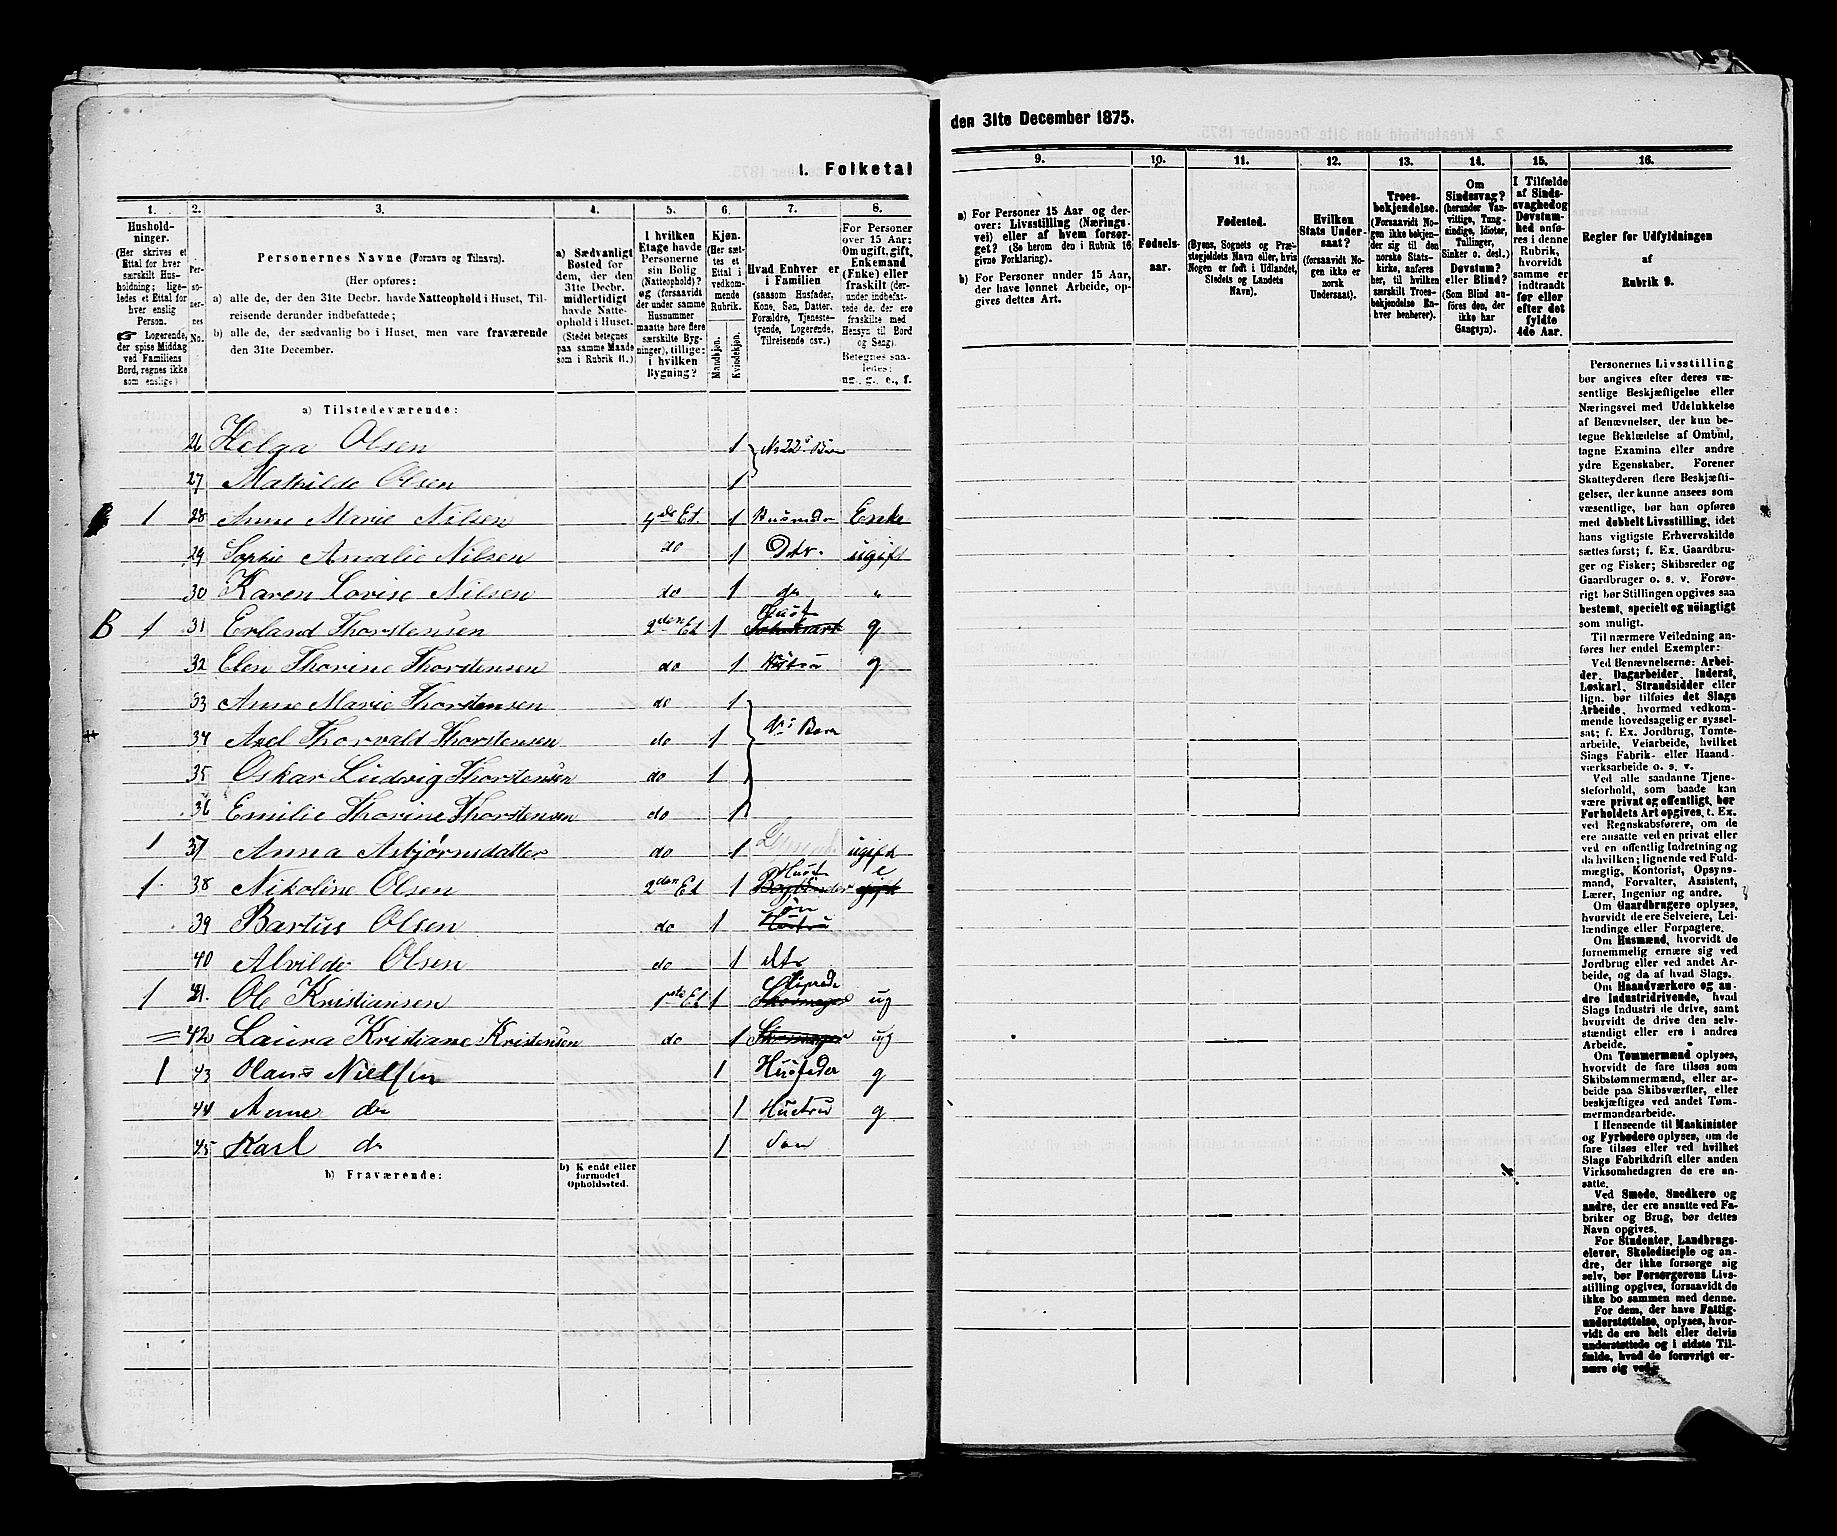 1. Folketal
1. 2. 3. 4. 5. 6. 7. 8.
Hushold-
ninger.
(Her skrives et
Ettal for hver
særskilt Hus-
holdning; lige-
ledes et Ettal for
hver enslig
Person.
☞ Logerende,
der spise Middag
ved Familiens
Bord, regnes ikke
som enslige)
Per-
so-
ner-
nes
No.
Personernes Navne (Fornavn og Tilnavn).
(Her opføres:
a) alle de, der den 31te Decbr. havde Natteophold i Huset, Til-
reisende derunder indbefattede;
b) alle de, der sædvanlig bo i Huset, men vare fraværende
den 31te December.
a) Sædvanligt
Bosted for
dem, der den
31te Decbr.
midlertidigt
havde Natte-
ophold i Huset.
(Stedet betegnes
paa samme Maade
som i Rubrik 11.)
I hvilken
Etage havde
Personerne
sin Bolig
(Natteophold)?
og (forsaavidt
der under samme
Husnummer
maatte høre flere
særskilte Byg-
ninger), tillige:
i hvilken
Bygning?
Kjøn.
(Her sæt-
tes et
Ettal i
vedkom-
mende
Rubrik.
Mandkjøn.
Kvindekjøn.
Hvad Enhver er
i Familien
(saasom Husfader,
Kone, Søn, Datter,
Forældre, Tjeneste-
tyende, Logerende,
Tilreisende osv.)
For Personer
over 15 Aar:
Om ugift, gift,
Enkemand
(Enke) eller
fraskilt (der-
under indbefat-
tede de, der ere
fraskilte med
Hensyn til Bord
og Seng).
Betegnes saa-
ledes:
ug., g., e., f.
a) Tilstedeværende:
26 Helga Olsen 1 No 22s Børn
27 Mathilde Olsen 1
1 28 Anne Marie Nilsen Et. 1 Enke
29 Sophie Amalie Nilsen do 1 Dtr. ugift
30 Karen Lovise Nilsen do 1 do "
B 1 31 Erland Thorstensen 2den Et 1 Husf g
32 Elen Thorine Thorstensen do 1 g
33 Anne Marie Thorstensen do 1
34 Axel Thorvald Thorstensen do 1 ds Børn
35 Oskar Ludvig Thorstensen do 1
36 Emilie Thorine Thorstensen do 1
1 37 Anna Asbjørnsdatter do 1 ugift
1 38 Nikoline Olsen 2den Et 1 Husf e
39 Bartus Olsen do 1 Søn
40 Alvilde Olsen do 1 dtr
1 41. Ole Kristiansen 1ste Et 1 ug
= 42 Laura Kristiane Kristensen do 1 ug
1 43 Olaus Nielsen 1 Husfader g
44 Anne do 1 Hustru g
45 Karl do 1 Søn
b) Fraværende:
b) Kendt eller
formodet
Opholdssted.
den 31te December 1875.
9. 10. 11. 12. 13. 14. 15. 16.
a) For Personer 15 Aar og der-
over: Livsstilling (Nærings-
vei) eller af hvem forsør-
get? (Se herom den i Rubrik 16
givne Forklaring).
b) For Personer under 15 Aar,
der have lønnet Arbeide, op-
gives dettes Art.
Fødsels-
aar.
Fødested.
(Byens, Sognets og Præ-
stegjeldets Navn eller, hvis
Nogen er født i Udlandet,
Stedets og Landets
Navn).
Hvilken
Stats Under-
saat?
(forsaavidt No-
gen ikke er
norsk
Undersaat).
Troes-
bekjendelse.
(Forsaavidt No-
gen ikke bekjen-
der sig til den
norske Stats-
kirke, anføres
her, til hvilken
særskilt Troes-
bekjendelse En-
hver henhører).
Om
Sindssvag?
(herunder Van-
vittige, Tung-
sindige, Idioter,
Tullinger,
Sinker o. desl.)
Døvstum?
eller Blind?
(Som Blind an-
føres den, der
ikke har
Gangsyn).
I Tilfælde
af Sinds-
svaghed og
Døvstum-
hed anfø-
res i denne
Rubrik,
hvorvidt
samme er
indtraadt
før eller
efter det
fyldte
4de Aar.
Regler før Udfyldningen
af
Rubrik 9.
Personernes Livsstilling
bør angives efter deres væ-
sentlige Beskjæftigelse eller
Næringsvei med Udelukkelse
af Benævnelser, der kun be-
tegne Beklædelse af Ombud,
tagne Examina eller andre
ydre Egenskaber. Forener
Skatteyderen flere Beskjæfti-
gelser, der kunne ansees som
væsentlige, bør han opføres
med dobbelt Livsstilling, idet
hans vigtigste Erhvervskilde
sættes først; f. Ex. Gaardbru-
ger og Fisker; Skibsreder og
Gaardbruger o. s. v. Forøv-
rigt bør Stillingen opgives saa
bestemt, specielt og nøiagtigt
som muligt.
Til nærmere Veiledning an-
føres her endel Exempler:
Ved Benævnelserne: Arbei-
der, Dagarbeider, Inderst,
Løskarl, Strandsidder eller
lign. bør tilføies det Slags
Arbeide, hvormed vedkom-
mende hovedsagelig er syssel-
sat; f. Ex. Jordbrug, Tomte-
arbeide, Veiarbeide, hvilket
Slags Fabrik- eller Haand-
værksarbeide o. s. v.
Ved alle saadanne Tjene-
steforhold, som baade kan
være privat og offentligt, bør
Forholdets Art opgives, t. Ex.
ved Regnskabsførere, om de
ere ansatte ved en privat eller
ved en offentlig Indretning og
da hvilken; lignende ved Fuld-
mægtig, Kontorist, Opsyns-
mand, Forvalter, Assistent,
Lærer, Ingeniør og andre.
Om Gaardbrugere oplyses,
hvorvidt de ere Selveiere, Lei-
lændinge eller Forpagtere.
Om Husmænd, hvorvidt de
fornemmelig ernære sig ved
Jordbrug eller ved andet Ar-
beide, og da af hvad Slags.
Om Haandværkere og an-
dre Industridrivende, hvad
Slags Industri de drive, samt
hvorvidt de drive den selv-
stændigt eller ere i andres
Arbeide.
Om Tømmermænd oplyses,
hvorvidt de fare tilsøs som
Skibstømmermænd, eller ar-
beide paa Skibsværfter, eller
beskjæftiges ved andet Tøm-
mermandsarbeide.
I Henseende til Maskinister
og Fyrbødere oplyses, om de
fare tilsøs eller ved hvilket
Slags Fabrikdrift eller anden
Virksomhedsgren de ere an-
satte.
Ved Smede, Snedkere og
andre, der ere ansatte ved Fa-
briker og Brug, bør dettes
Navn opgives.
For Studenter, Landbrugs-
elever, Skoledisciple og an-
dre, der ikke forsørge sig
selv, bør Forsørgerens Livs-
stilling opgives, forsaavidt de
ikke bo sammen med denne.
For dem, der have Fattig-
understøttelse, oplyses, hvor-
vidt de ere helt eller delvis
understøttede og i sidste Til-
fælde, hvad de forøvrigt er-
nære sig ved.